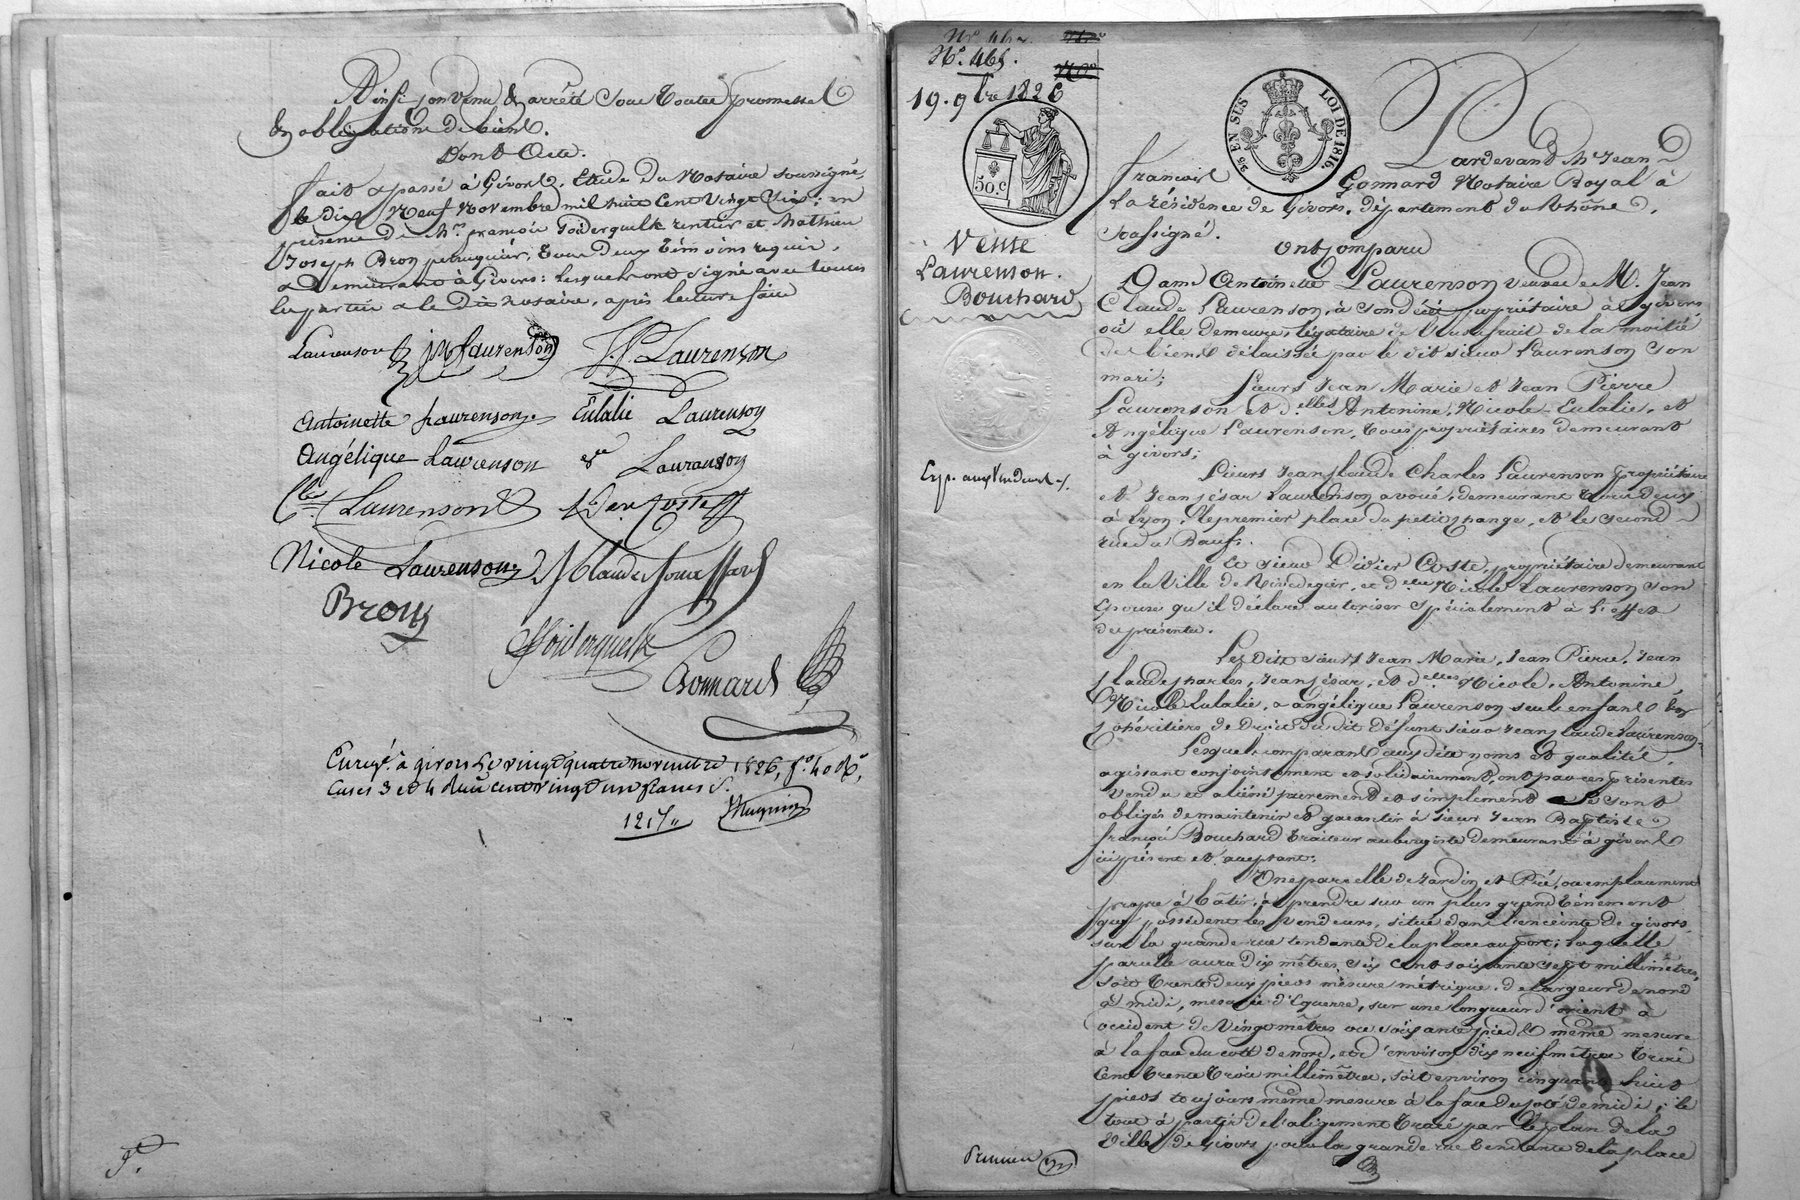 Ainsi convenu & arrêté sous toutes promesses
& obligations de biens.
Dont Acte.
fait & passé à Givors, Etude du Notaire soussigné,
le dix Neuf Novembre mil huit Cent Vingt Six; en
présence de Mr. françois Goiderquelk rentier et Mathieu
Joseph Bron perruquier, tous deux témoins requis,
& demeurant à Givors: lesquels ont signé avec toutes
les parties & le dit Notaire, après lecture faite
Laurenson J M Laurenson J. P. Laurenson
Antoinette Laurenson. Eulalie Laurenson
Angélique Laurenson Laurenson
Laurenson Coste
Nicole Laurenson
Bron
Gonnard
Enregé. à givors le vingt quatre novembre 1826, fo. 40 Ro,
Cases 3 et 4 Reçu cent vingt un francs
121f
No. 465.
19. 9bre 1826
25 EN SUS LOI DE 1816.
50.C
Vente
Laurenson.
Bouchard
Exp. aux Vendeurs
Pardevant Me Jean
françois Gonnard Notaire Royal à
la résidence de Givors, département du Rhône,
soussigné.
Ont comparu
Dame Antoinette Laurenson veuve de M. Jean
Claude Laurenson, à son décès propriétaire à givors
où elle demeure, légataire de l'usufruit de la moitié
des biens délaissés par le dit sieur Laurenson son
mari;
Sieurs Jean Marie et Jean Pierre
Laurenson et delles Antonine, Nicole Eulalie, et
Angélique Laurenson, tous propriétaires demeurant
à givors;
Sieurs Jean Claude Charles Laurenson propriétaire
et Jean César Laurenson avoué, demeurant tous deux
à Lyon, le premier place du petit change, et le second
rue du Bœuf;
Et sieur Didier Coste, propriétaire demeurant
en la Ville de Rivedegier, et delle Nicole Laurenson son
Epouse qu'il déclare autoriser spécialement à l'effet
des présentes.
Les dits sieurs Jean Marie, Jean Pierre, Jean
Claude Charles, Jean César, et delles Nicole, Antonine,
Nicole Eulalie, & angélique Laurenson seuls enfants &
cohéritiers de droit du dit défunt sieur Jean Claude Laurenson.
Lesquels comparants aux dits noms et qualités,
agissant conjointement et solidairement, ont par ces présentes
vendu et aliéné purement et simplement se sont
obligés de maintenir et garantir à sieur Jean Baptiste
françois Bouchard traiteur aubergiste demeurant à givors
ici présent et acceptant:
Une parcelle de Jardin et Pré, ou emplacement
propre à bâtir, à prendre sur un plus grand tènement
que possèdent les vendeurs, située dans l'enceinte de givors,
sur la grande rue tendante de la place au port; laquelle
parcelle aura dix mètres six cent soixante sept millimètres,
soit trente deux pieds mesure métrique, de largeur de nord
à midi, mesurée d'Equerre, sur une longueur d'orient à
occident de Vingt mètres ou soixante pieds même mesure
à la face du coté de nord, et d'environ dix neuf mètres trois
Cent trente trois millimètres, soit environ cinquante huit
pieds toujours même mesure à la face du coté de midi; le
tout à partir de l'alignement tracé par le plan de la
Ville de Givors pour la grande rue tendante de la place